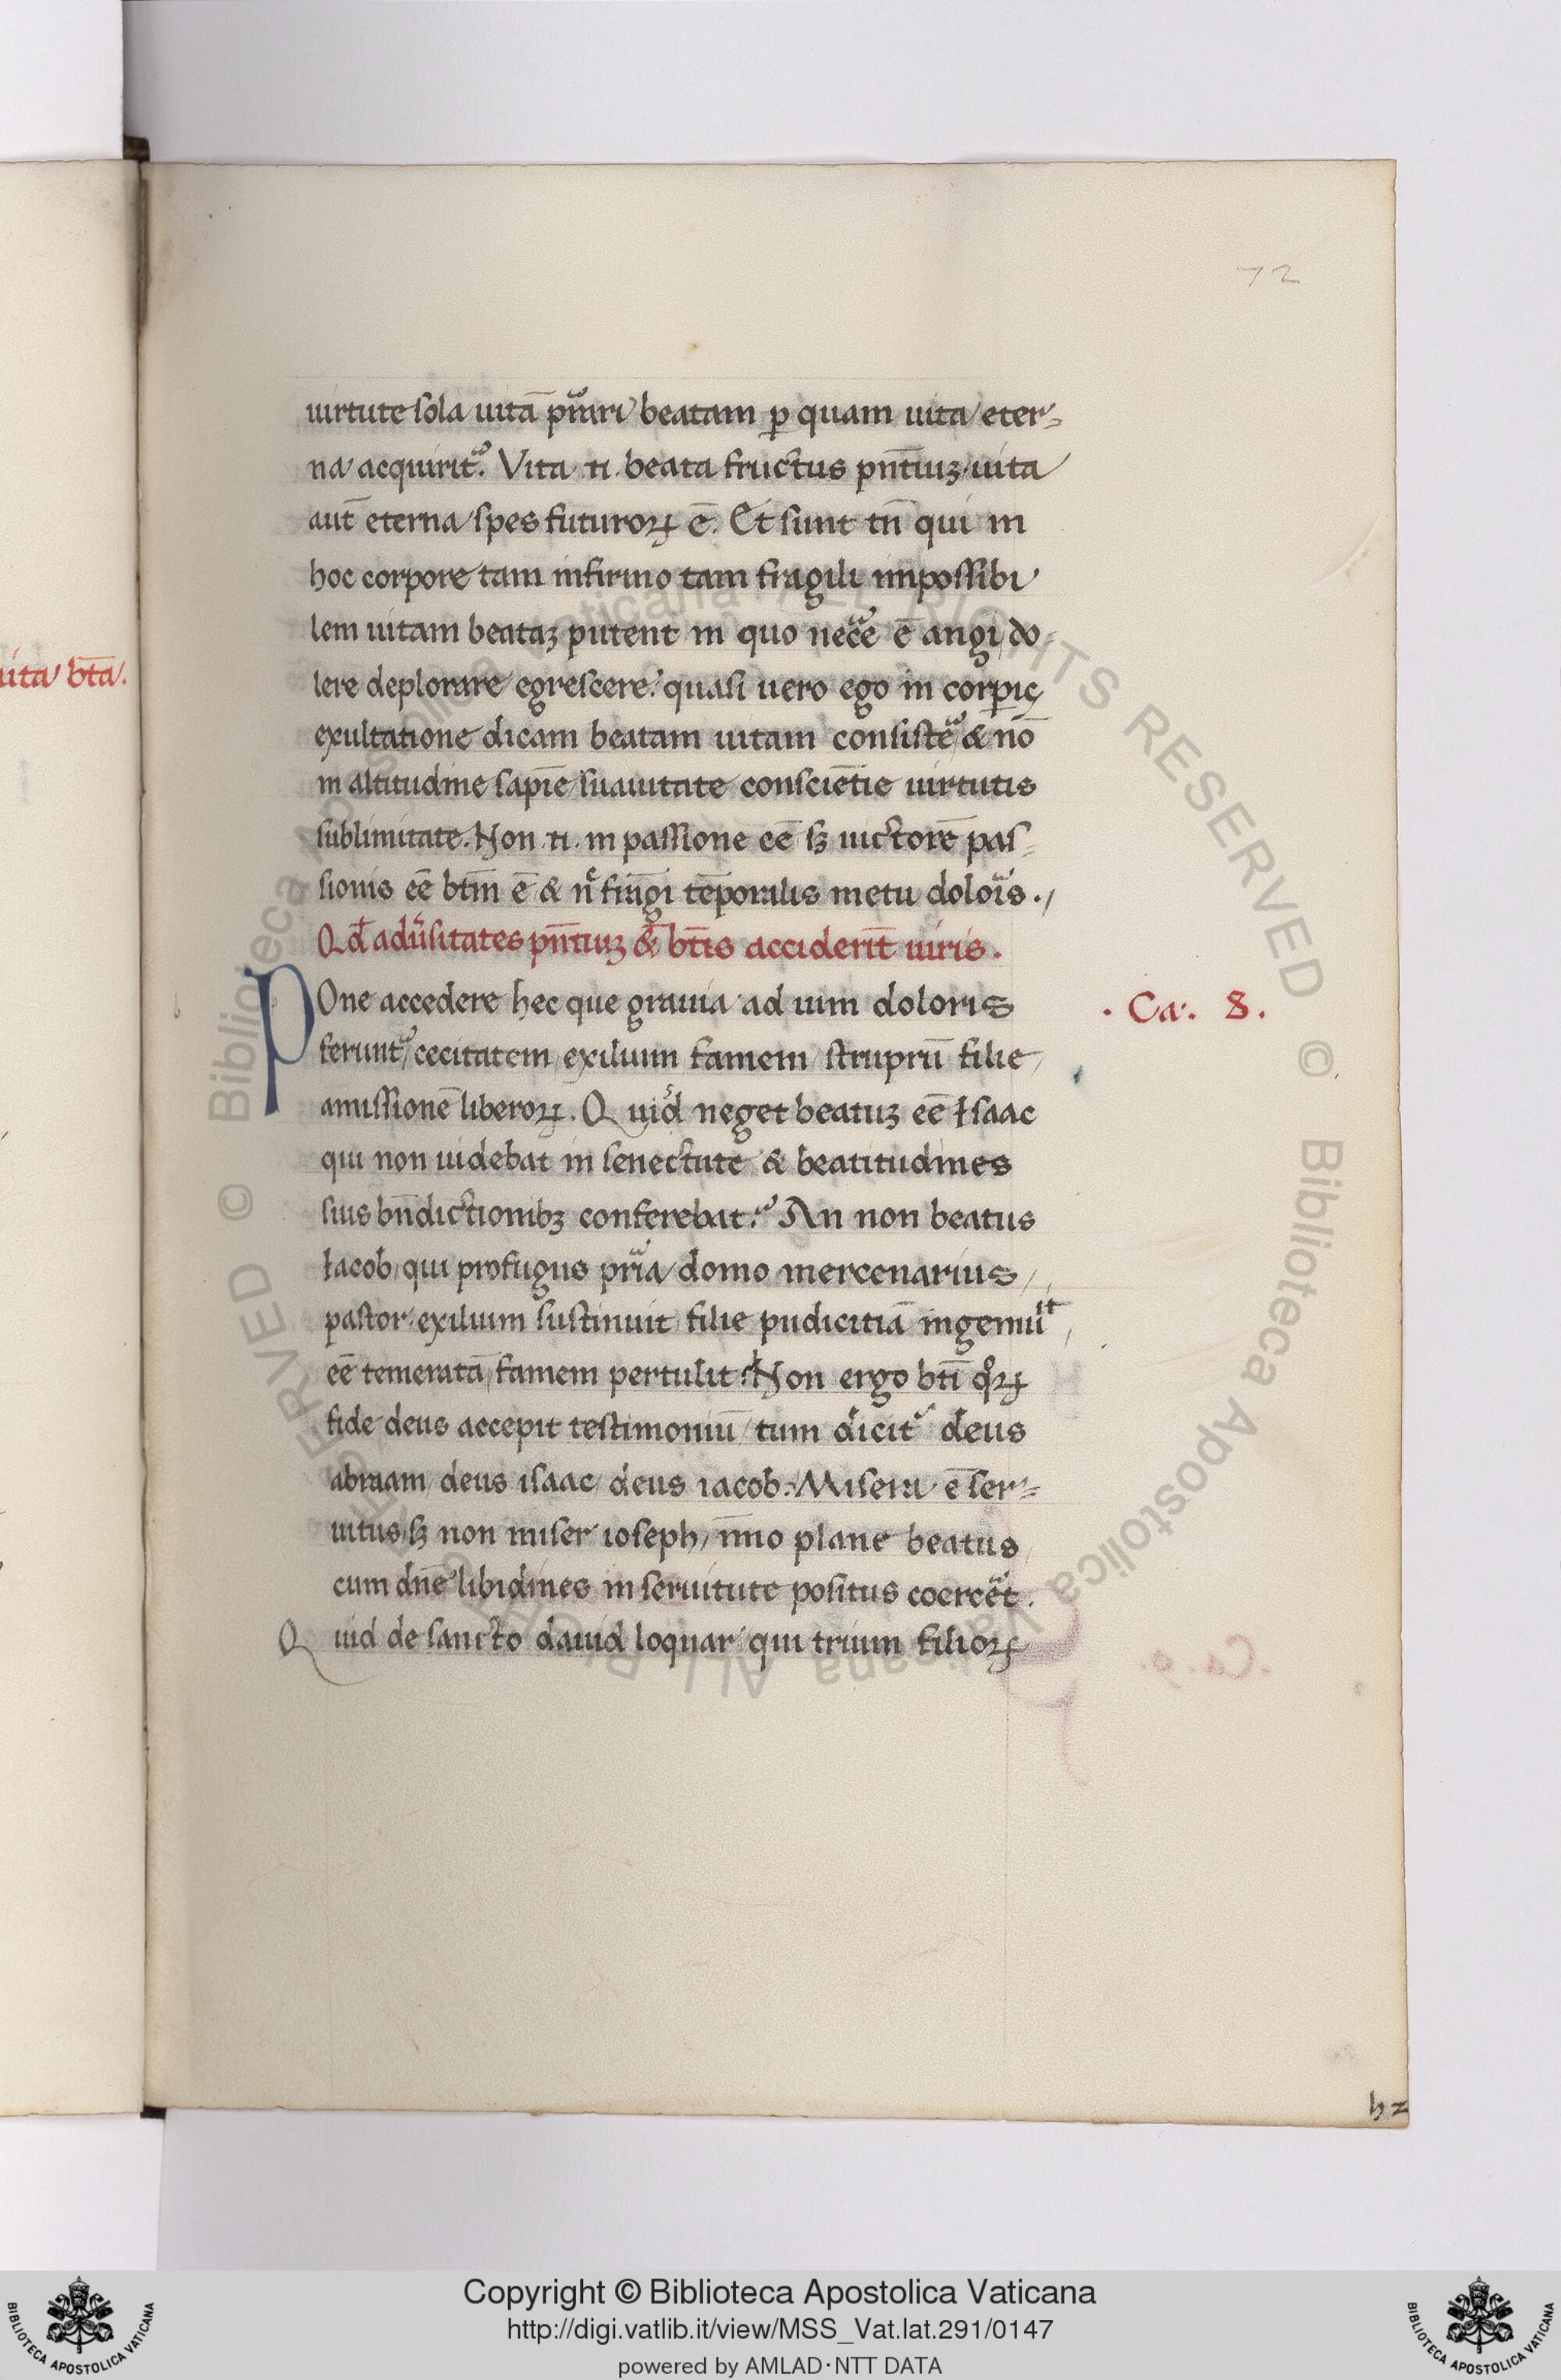 72
uirtute sola uitā p̄rari beatam ꝑ quam uita eter-
na acquirit᷑. Vita .n. beata fructus pn̄tiuꝫ uita
aut̄ eterna spes futuroꝝ ē. Et sunt tn̄ qui in
hoc corpore tam infirmo tam fragili impossibi
lem uitam beataꝫ putent in quo necē ē angi do-
lere deplorare egrescere: quasi uero ego in corꝑis
exultatione dicam beatam uitam consistē & nō
in altitudine sapiē suauitate consciētie uirtutis
sublimitate. Non .n. in passione eē sꝫ uictorē pas-
sionis eē btm̄ ē & n̄ frāgi tēporalis metu dolois.
Qđ adusitates pn̄tiuꝫ & bt̄is acciderīt uiris.
POne accedere hec que grauia ad uim doloris
. Ca. 8.
ferunt᷑, cecitatem exilium famem struprū filie
amissionē liberoꝝ. Quid neget beatuꝫ eē Isaac
qui non uidebat in senectute & beatitudines
suis bn̄dictionibꝫ conferebat? An non beatus
Iacob qui profugus pr̄ia domo mercenarius
pastor exilium sustinuit filie pudicitiā ingemuit
eē temeratā famem pertulit? Non ergo bt̄i qͦꝝ
fide deus accepit testimoniū tum dicit᷑ deus
abraam deus isaac deus iacob. Misera ē ser-
uitus sꝫ non miser ioseph, īmo plane beatus
cum dn̄e libidines in seruitute positus coercēt.
Quid de sancto dauid loquar qui trium filioꝝ
uita bt̄a.
h2
Copyright © Biblioteca Apostolica Vaticana
http://digi.vatlib.it/view/MSS_Vat.lat.291/0147
powered by AMLAD·NTT DATA
BIBLIOTECA APOSTOLICA VATICANA
BIBLIOTECA APOSTOLICA VATICANA
© Biblioteca Apostolica Vaticana ALL RIGHTS RESERVED © Biblioteca Apostolica Vaticana ALL RIGHTS RESERVED